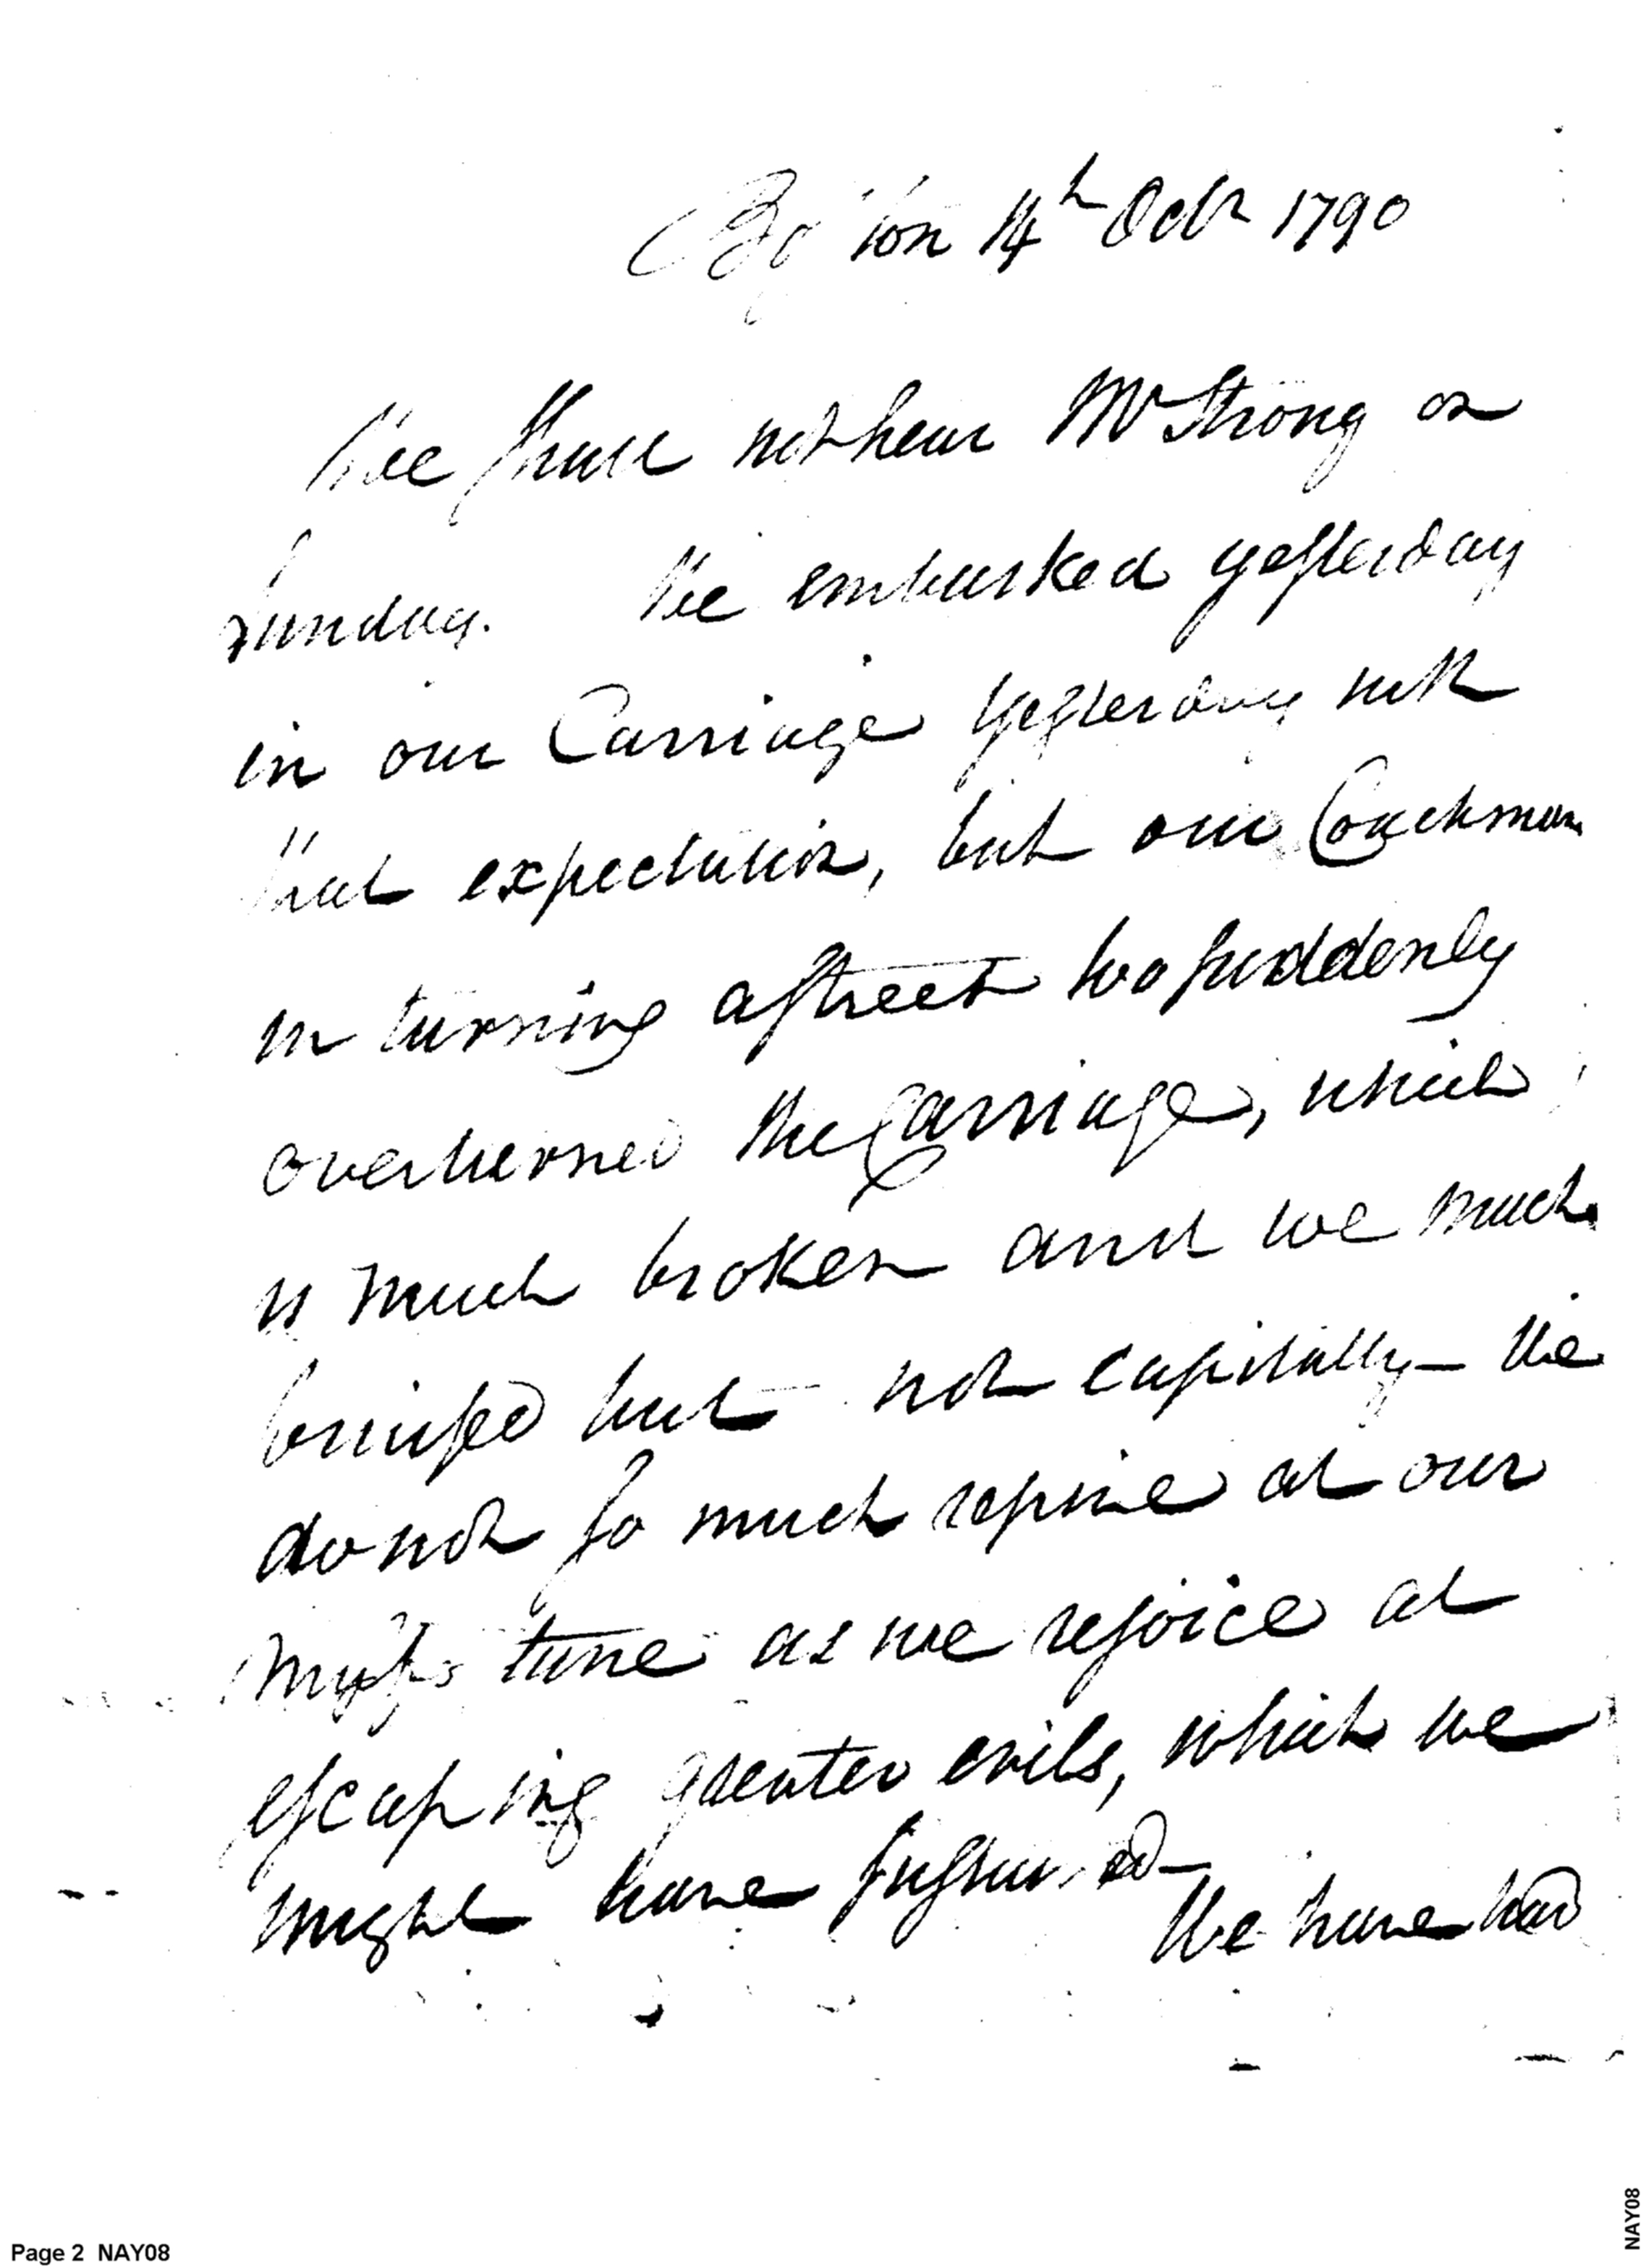 Boston 14th Octr 1790
We shall not hear Mr Strong on
Sunday. We embarked yesterday
in our Carriage yesterday with
that expectation, but our Coachman
in turning a street too suddenly
overturned the Carriage, which
is much broken and we much
bruised but not capitally — We
do not so much repine at our
misfortune as we rejoice at
escaping greater evils, which we
might have sustained — We have had
Page 2 NAY08
NAY08